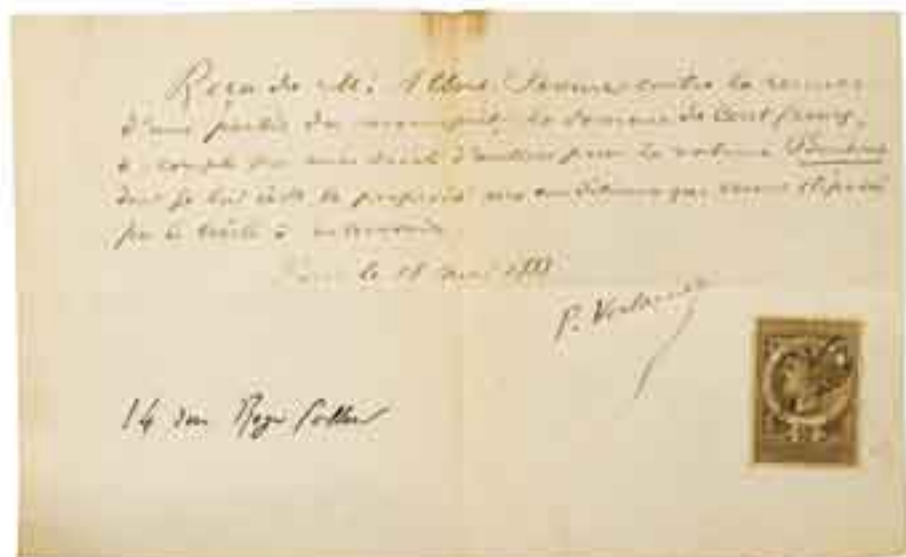 Reçu de M. Albert Savine contre la remise
d'une partie du manuscrit la somme de Cent francs,
à compte sur mes droits d'auteur pour le volume
dont je lui cède la propriété aux conditions qui seront
par le traité à intervenir.
le 18 mai 1888
P. Verlaine
14